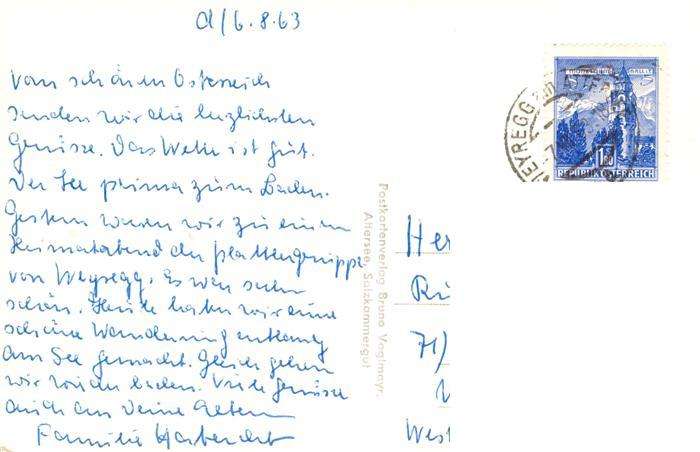 d/6.8.63
Vom schönen Österreich
senden wir die herzlichsten
Grüsse. Das Wetter ist gut.
Der See prima zum Baden.
Gestern waren wir zu einem
Heimatabend der plattlergruppe
von Weyregg. Es war sehr
schön. Heute haben wir eine
schöne Wanderung entlang
am See gemacht. Gleich gehen
wir wieder baden. Viele Grüsse
auch an Deine Eltern
Familie
Postkartenverlag Bruno Voglmayr,
Attersee, Salzkammergut
WEYREGG
1.50
REPUBLIK ÖSTERREICH
Her
Ri
71/
West